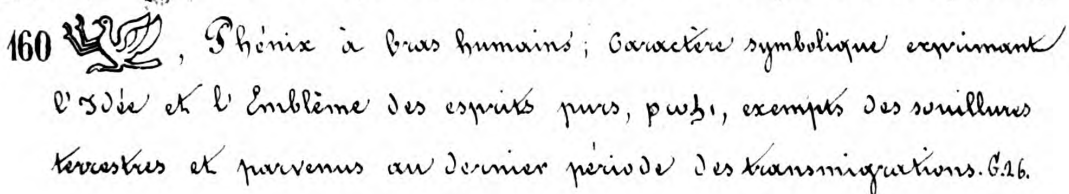 160, Phénix à bras humains; Caractère symbolique exprimant
l'Idée et l'Emblême des esprits purs, ⲣⲱϧⲓ, exempts des souillures
terrestres et parvenus au dernier période des transmigrations. G.26.